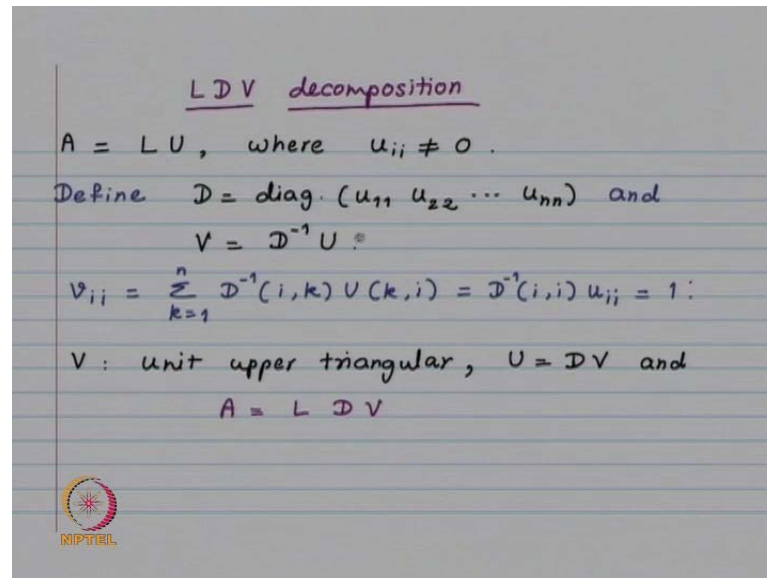 LDV decomposition
A = LU, where u_{ii} ≠ 0.
Define D = diag. (u_{11} u_{22} ⋯ u_{nn}) and
V = D^{-1} U :
v_{ii} = \sum_{k=1}^{n} D^{-1}(i,k) U(k,i) = D^{-1}(i,i) u_{ii} = 1 :
V : unit upper triangular, U = DV and
A = L D V
NPTEL